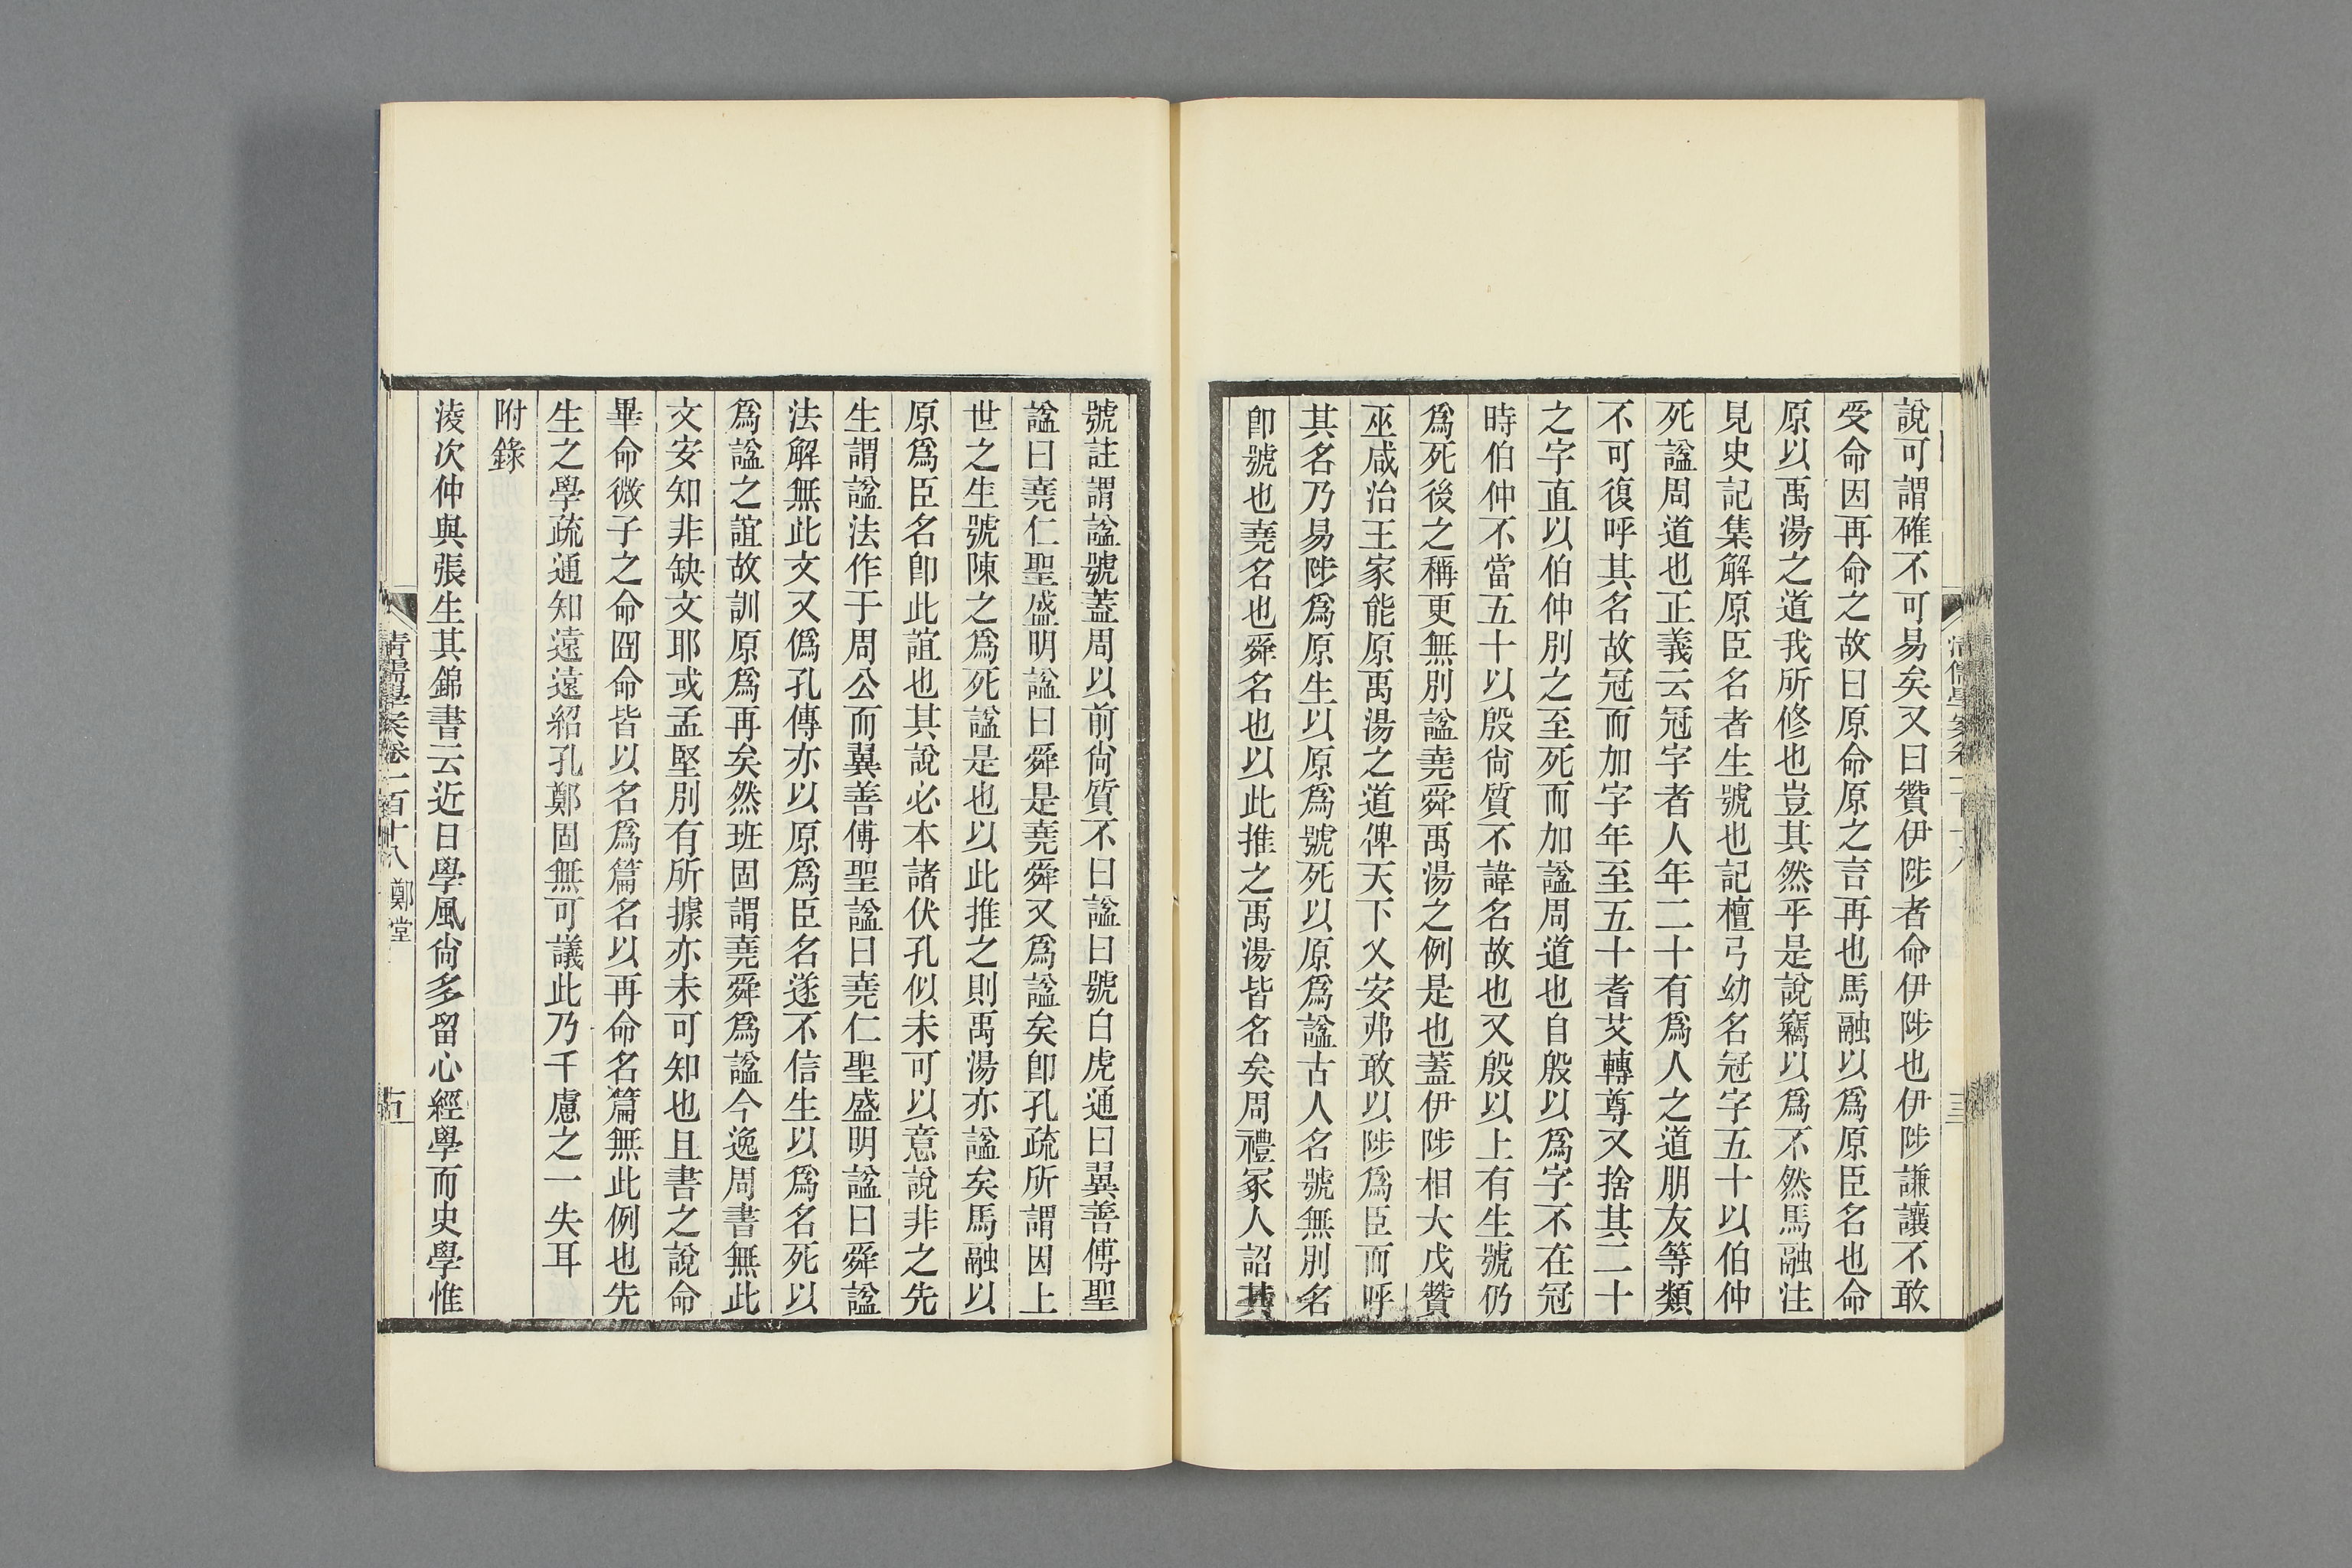 說可謂確不可易矣又曰贊伊陟者命伊陟也伊陟謙讓不敢
受命因再命之故曰原命原之言再也馬融以爲原臣名也命
原以禹湯之道我所修也豈其然乎是說竊以爲不然馬融注
見史記集解原臣名者生號也記檀弓幼名冠字五十以伯仲
死諡周道也正義云冠字者人年二十有爲人之道朋友等類
不可復呼其名故冠而加字年至五十耆艾轉尊又捨其二十
之字直以伯仲別之至死而加諡周道也自殷以爲字不在冠
時伯仲不當五十以殷尙質不諱名故也又殷以上有生號仍
爲死後之稱更無別諡堯舜禹湯之例是也蓋伊陟相大戊贊
巫咸治王家能原禹湯之道俾天下乂安弗敢以陟爲臣而呼
其名乃易陟爲原生以原爲號死以原爲諡古人名號無別名
卽號也堯名也舜名也以此推之禹湯皆名矣周禮冢人詔其
號註謂諡號蓋周以前尙質不曰諡曰號白虎通曰翼善傳聖
諡曰堯仁聖盛明諡曰舜是堯舜又爲諡矣卽孔疏所謂因上
世之生號陳之爲死諡是也以此推之則禹湯亦諡矣馬融以
原爲臣名卽此誼也其說必本諸伏孔似未可以意說非之先
生謂諡法作于周公而翼善傳聖諡曰堯仁聖盛明諡曰舜諡
法解無此文又僞孔傳亦以原爲臣名遂不信生以爲名死以
爲諡之誼故訓原爲再矣然班固謂堯舜爲諡今逸周書無此
文安知非缺文耶或孟堅別有所據亦未可知也且書之說命
畢命微子之命冏命皆以名爲篇名以再命名篇無此例也先
生之學疏通知遠遠紹孔鄭固無可議此乃千慮之一失耳
附錄
淩次仲與張生其錦書云近日學風尙多留心經學而史學惟
清儒學案卷一百十八 鄭堂